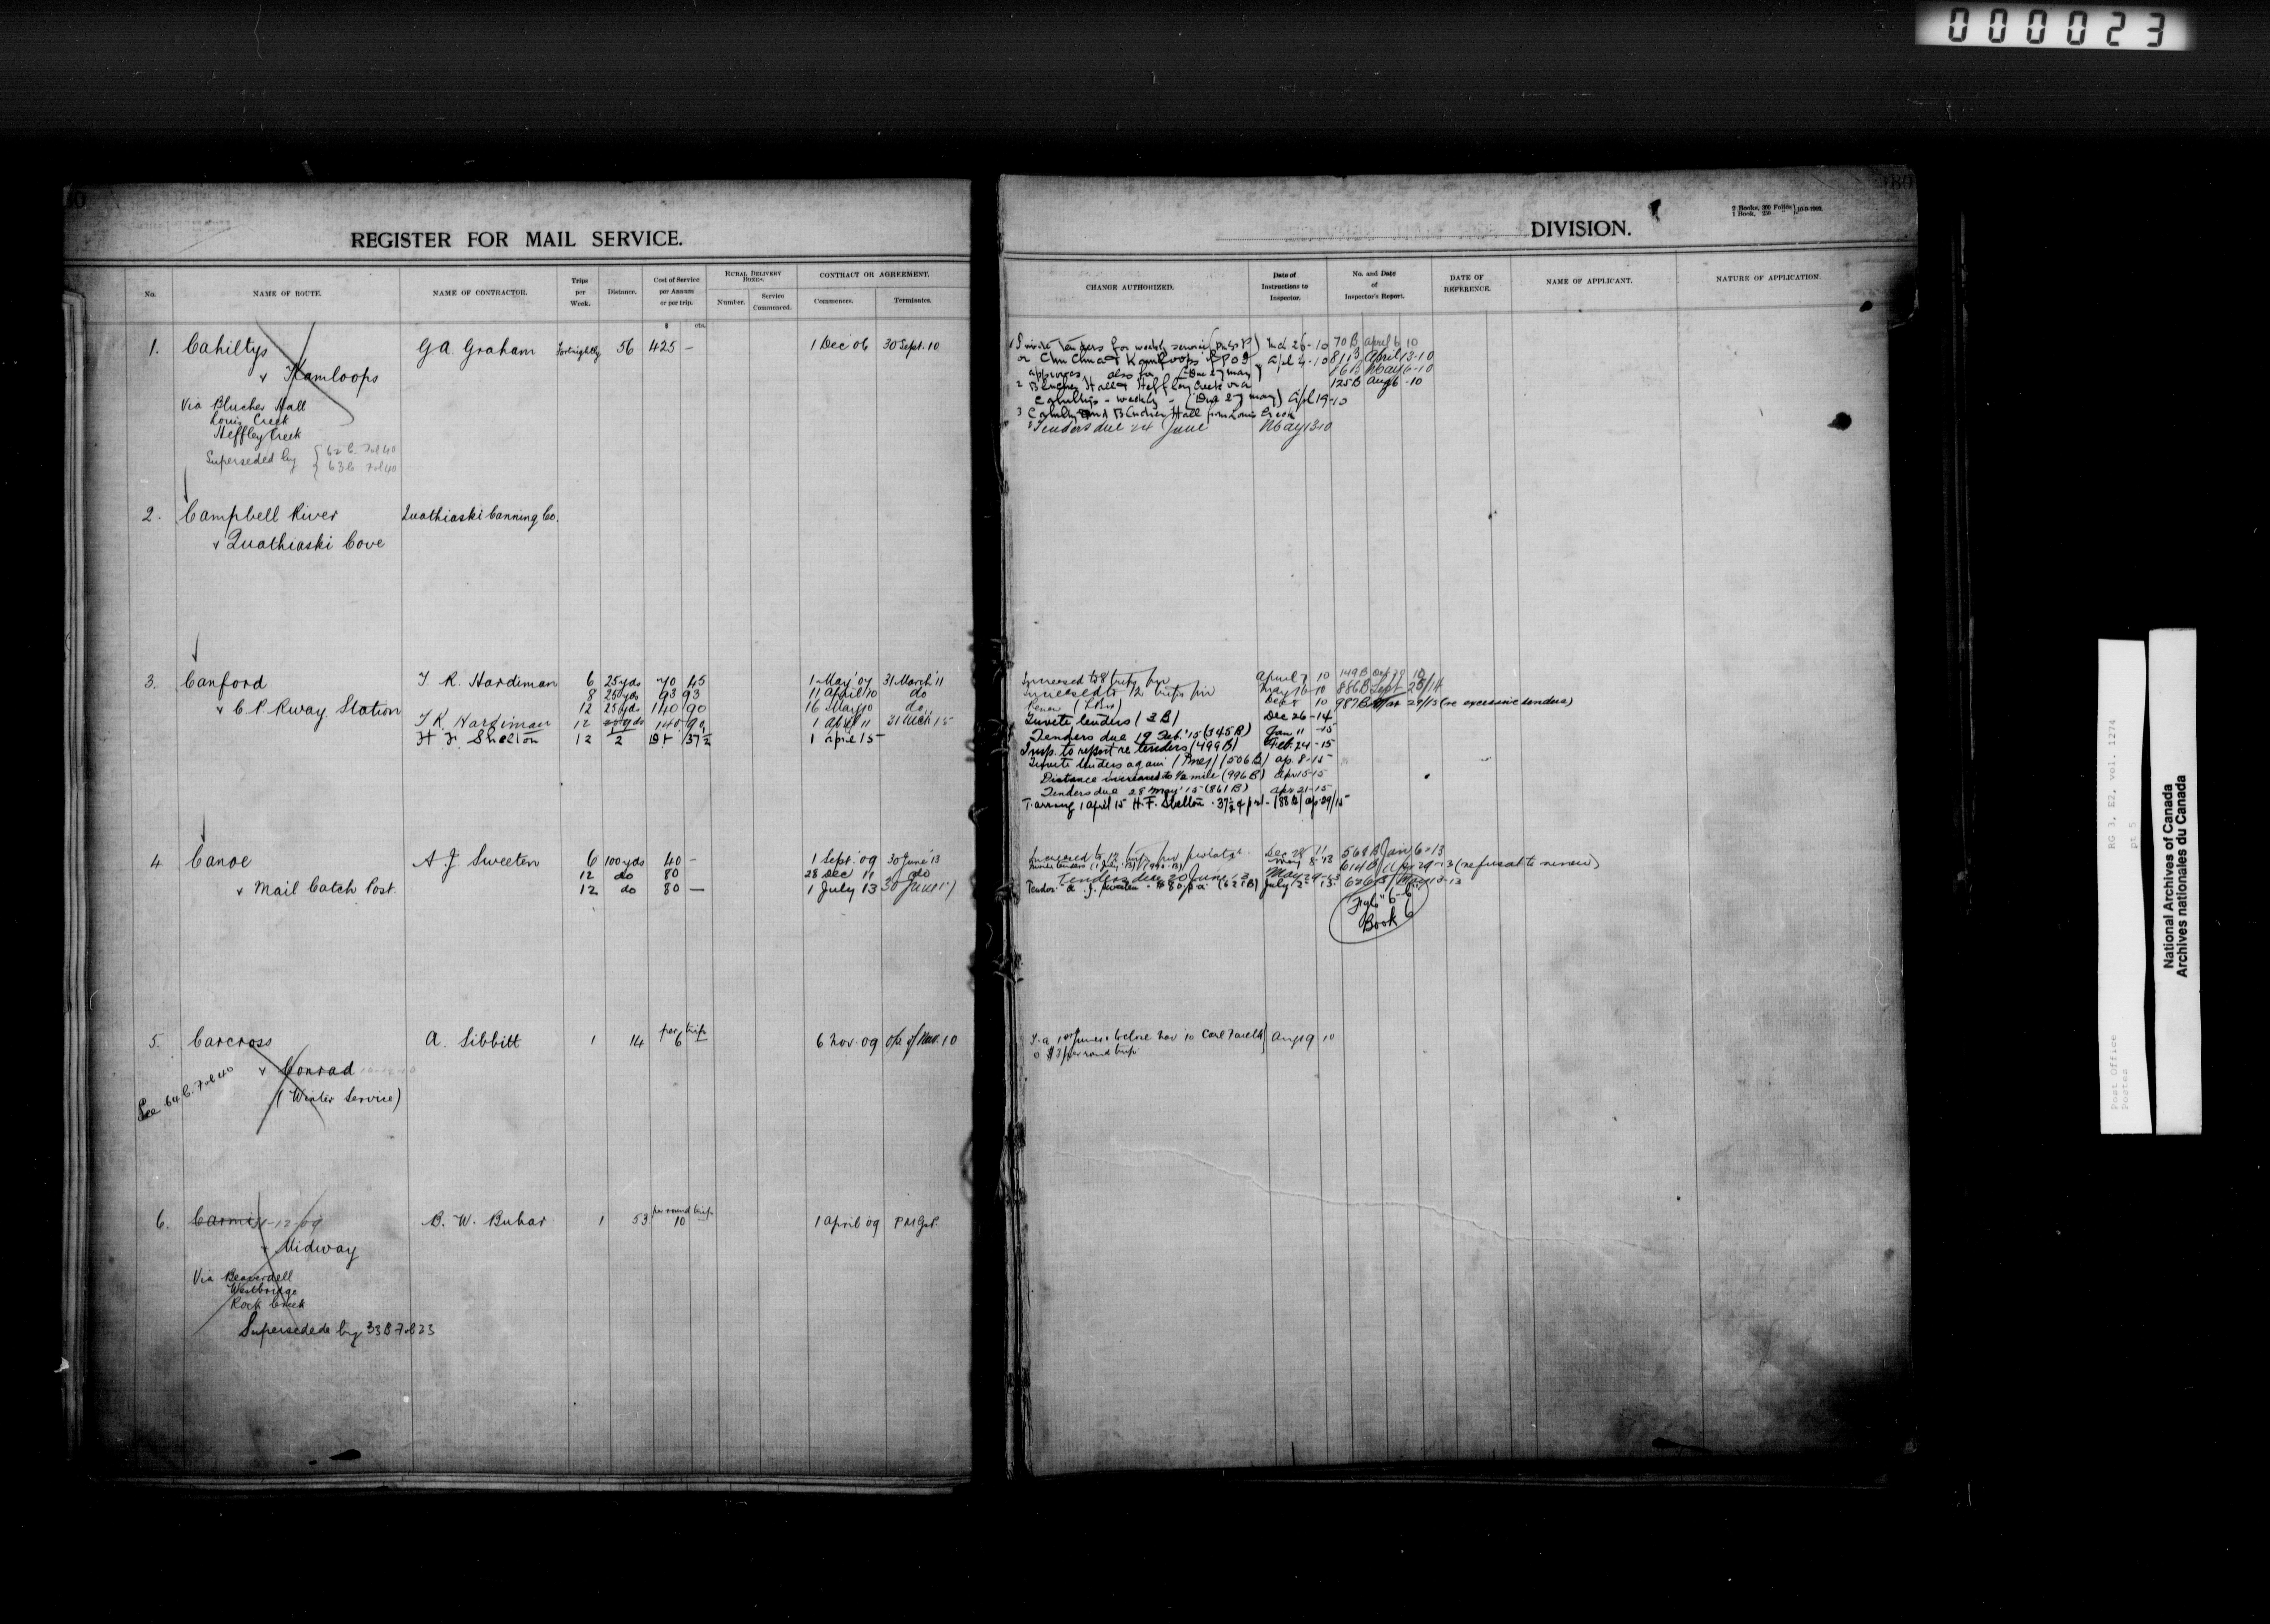 000023
80
REGISTER FOR MAIL SERVICE.
No.
NAME OF ROUTE.
NAME OF CONTRACTOR.
Trips per Week.
Distance.
Cost of Service per Annum or per trip.
RURAL DELIVERY BOXES.
Number.
Service Commenced.
CONTRACT OR AGREEMENT.
Commences.
Terminates.
$ cts.
1. Cahiltys G A. Graham Fortnightly 56 425 – 1 Dec 06 30 Sept. 10
& Kamloops
Via Blucher Hall
Louis Creek
Heffley Creek
Superseded by { 62 C. Fol 40
63 C Fol 40
2. Campbell River Quathiaski Canning Co.
& Quathiaski Cove
3. Canford T. R. Hardiman 6 25 yds 70 45 1 May '07 31 March '11
8 25 yds 93 93 11 April 10 do
& C. P. Rway. Station 12 25 yds 140 90 16 May 10 do
T K Hardiman 12 140 90 1 April 11 31 Mch 15
H F. Shelton 12 37½ 1 april 15
4 Canoe A J. Sweeten 6 100 yds 40 – 1 Sept. '09 30 June '13
12 do 80 28 Dec 11 do
& Mail Catch Post. 12 do 80 – 1 July 13 30 June 17
5. Carcross A. Sibbitt 1 14 per trip 6 6 Nov. 09 of Nav. 10
& Conrad
(Winter Service)
See 64 C. Fol 40
6. Carmi 1-12-09 B. W. Bubar 1 53 per round trip 10 1 April 09 P M G P.
& Midway
Via Beaverdell
Westbridge
Rock Creek
Supersedede by 33 B Fol 23
80
DIVISION.
2 Books, 300 Folios
1 Book, 250 " } 10-9-1908.
CHANGE AUTHORIZED.
Date of Instructions to Inspector.
No. and Date of Inspector's Report.
DATE OF REFERENCE.
NAME OF APPLICANT.
NATURE OF APPLICATION.
Invite Tenders for weekly service Mch 26-10 70 B April 6 10
Kamloops Apl 4-10 81 B April 13-10
approves also for (Due 27 May) 86 B May 6-10
2 Blucher Hall & Heffley Creek via 125 B Aug 6-10
Cahiltys - weekly - (Due 27 May) Apl 19-10
3 Cahiltys and Blucher Hall from Louis Creek
Tenders due 24 June May 13 10
Increased to 8 trips April 7 10 149 B
Increased to 12 trips May 16-10 886 B Sept 25/14
Renew 10 987 B Mar 29/15 (re excessive tenders)
Invite tenders (3 B) Dec 26-14
Tenders due 19 Feb. '15 (345 B) Jan 11 -15
Insp. to report re tenders (499 B) Feb. 24-15
Invite tenders again (506 B) ap. 8-15
Distance increased to ½ mile (996 B) apr 15-15
Tenders due 28 May '15 (861 B) apr 21-15
T. arrang 1 april 15 H. F. Shelton 37½ (88 B) ap. 29/15
Increased to 12 trips Dec 28 11 568 B Jan 6-13
May 8-13 614 B Apr 29-13 (refusal to renew)
Tenders due 20 June May 29-13 626 B May 13-13
Tender A. J. Sweeten - $80 p a (627 B) July 2-13
Book 6
before Nov 10 Aug 19 10
@ $3 per round trip
Post Office
Postes
RG 3, E2, vol. 1274
pt 5
National Archives of Canada
Archives nationales du Canada